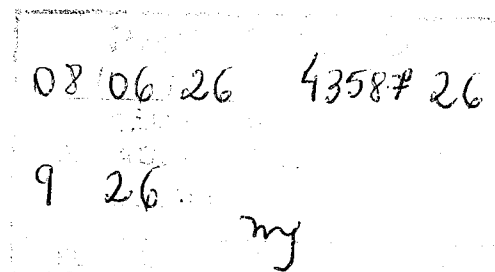 08 06 26 43587 26
9 26